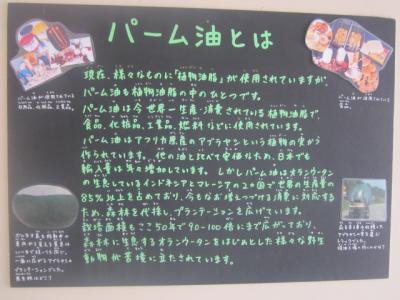 パーム油とは
現在、様々なものに「植物油脂」が使用されていますが、
パーム油も植物油脂の中のひとつです。
パーム油は今世界一生産・消費されている植物油脂で、
食品、化粧品、工業品、燃料などに使用されています。
パーム油はアフリカ原産のアブラヤシという植物の実から
作られています。他の油と比べて安価なため、日本でも
輸入量は年々増加しています。しかしパーム油はオランウータン
の生息しているインドネシアとマレーシアの2ヵ国で世界の生産量の
85%以上を占めており、今もなお増えつづける消費に対応する
ため、森林を伐採し、プランテーションを広げています。
栽培面積もここ50年で90~100倍にまで広がっており、
森林に生息するオランウータンをはじめとした様々な野生
動物が苦境に立たされています。
パーム油が使用されている